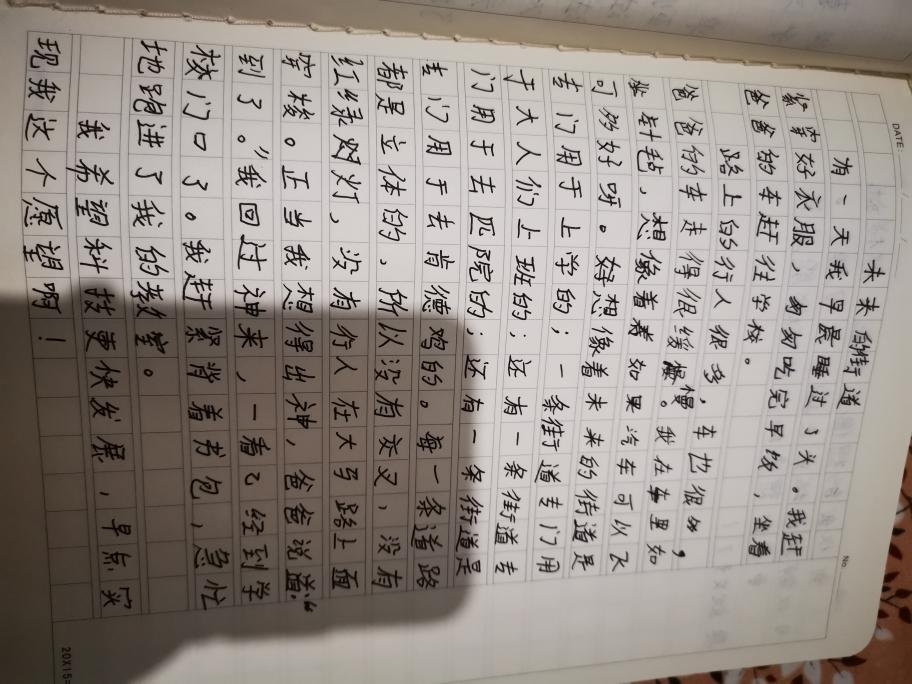 DATE:
No.
未来的街道
有一天我早晨睡过了头。我赶
紧穿好衣服，匆匆吃完早饭，坐着
爸爸的车赶往学校。
路上的行人很多，车也很多，
爸爸的车走得很缓慢。我在车里如
坐针毡，想像着着如果汽车可以飞
可多好呀。好想像着未来的街道是
专门用于上学的；一条街道专门用
于大人们上班的；还有一条街道专
门用于去医院的；还有一条街道是
专门用于去肯德鸡的。每一条道路
都是立体的，所以没有交叉，没有
红绿灯，没有行人在大马路上面
穿梭。正当我想得出神，爸爸说道：“
到了。”我回过神来，一看已经到学
校门口了。我赶紧背着书包，急忙
地跑进了我的教室。
我希望科技更快发展，早点实
现我这个愿望啊！
20X15=